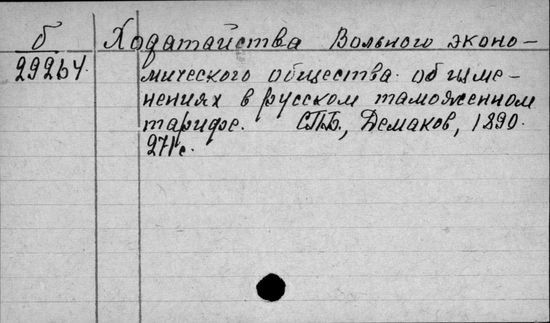 б
29264.
Ходатайства Вольного эконо-
мического общества об изме-
нениях в русском таможенном
тарифе. СПБ., Демаков, 1890.
271 с.